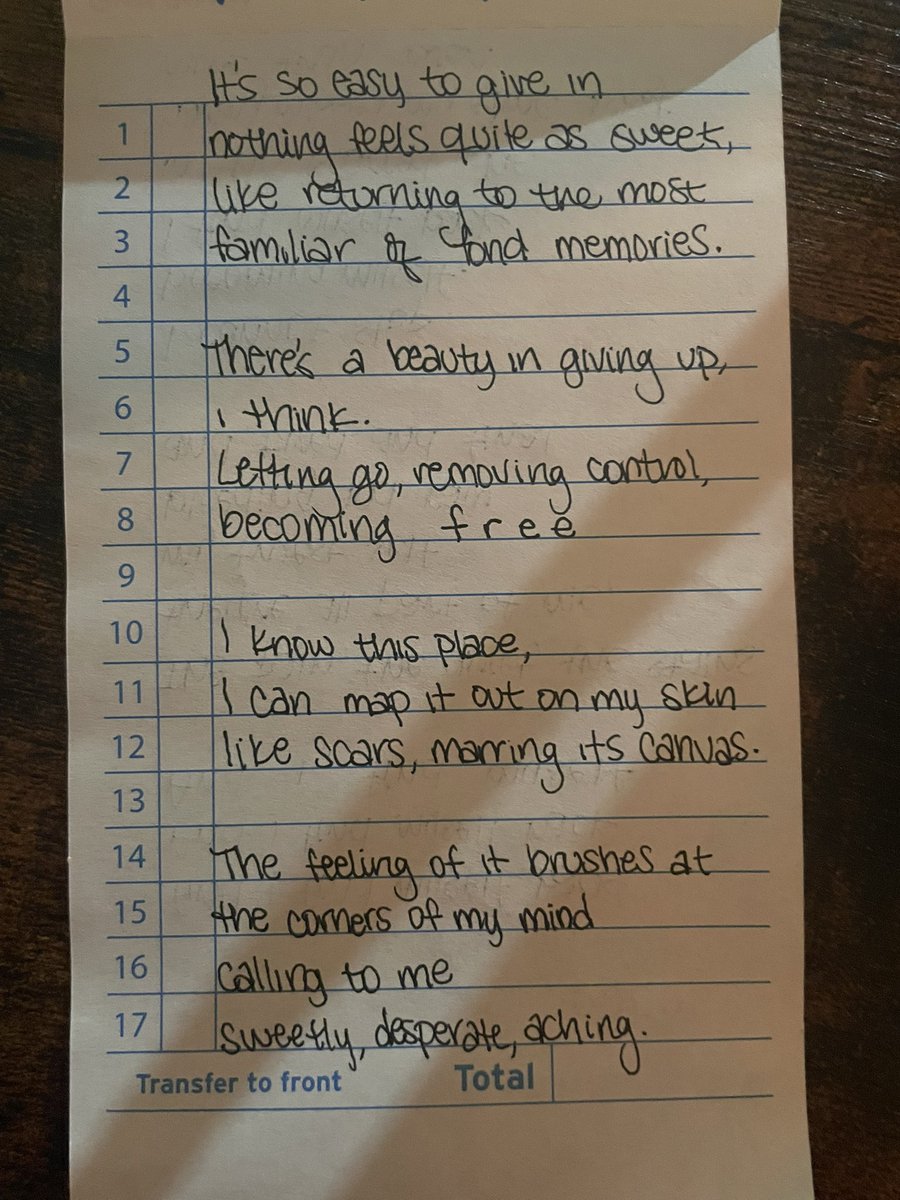 It's so easy to give in
1 nothing feels quite as sweet,
2 like returning to the most
3 familiar of fond memories.
4
5 There's a beauty in giving up,
6 i think.
7 Letting go, removing control,
8 becoming free
9
10 I know this place,
11 I can map it out on my skin
12 like scars, marring its canvas.
13
14 The feeling of it brushes at
15 the corners of my mind
16 calling to me
17 sweetly, desperate, aching.
Transfer to front Total